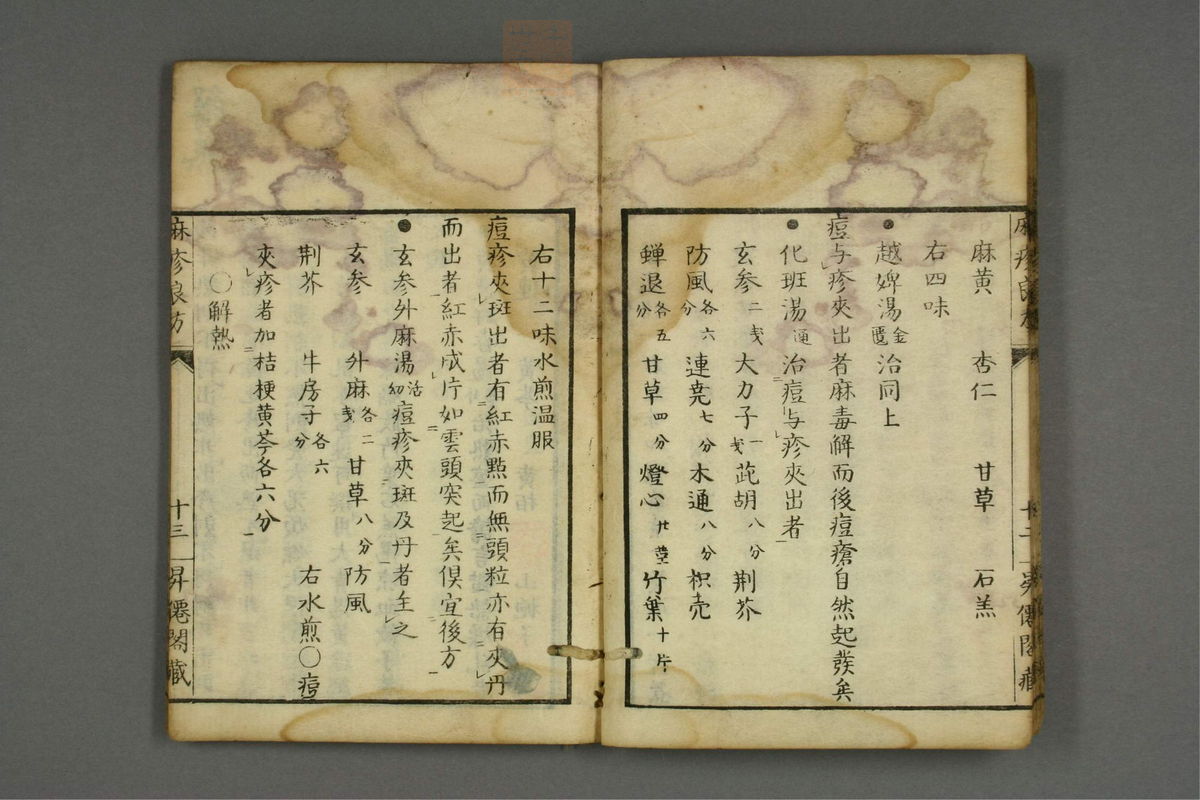 麻黄 杏仁 甘草 石羔
右四味
●越婢湯金匱治同上
痘与疹夾出者麻毒解而後痘瘡自然起發矣
●化班湯通治痘与疹夾出者
玄参二戔 大力子一戔 茈胡八分 荆芥
防風各六分 連尭七分 木通八分 枳壳
蟬退各五分 甘草四分 燈心廿莖 竹葉十片
右十二味水煎温服
痘疹夾斑出者有紅赤㸃而無頭粒亦有夾丹
而出者紅赤成片如雲頭突起矣俱宜後方
●玄参外麻湯活幼痘疹夾斑及丹者主之
玄参 外麻各二戔 甘草八分 防風
荆芥 牛房子各六分 右水煎○痘
夾疹者加桔梗黄芩各六分
○解熱
麻疹良方 十三 昇僊閣藏